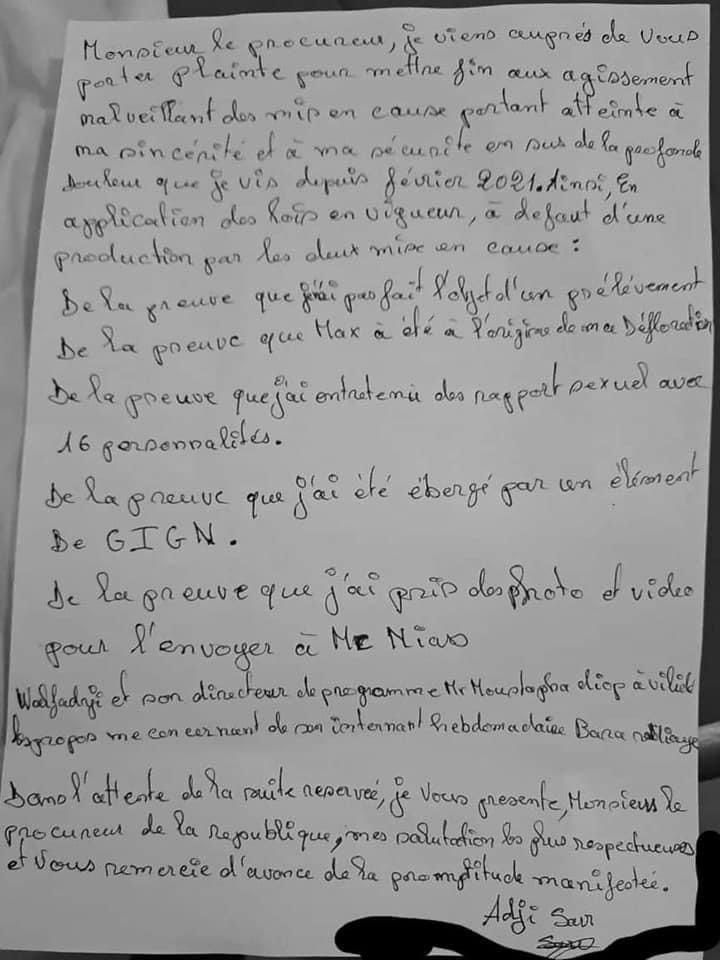 Monsieur le procureur, je viens auprés de vous
porter plainte pour mettre fin aux agissement
malveillant des mis en cause portant atteinte à
ma sincérité et à ma sécurite en sus de la profonde
Douleur que je vis depuis février 2021. Ainsi, En
application des lois en vigueur, à defaut d'une
production par les deux mise en cause :
De la preuve que j'ai pas fait l'objet d'un prélévement
De la preuve que Max à été à l'origine de ma Défloration
De la preuve que j'ai entretenu des rapport sexuel avec
16 personnalités.
De la preuve que j'ai été ébergé par un élément
De GIGN.
De la preuve que j'ai pris des photo et video
pour l'envoyer à Mc Nias
Walfadjri et son directeur de programme Mr Moustapha diop à
propos me concernant de son hebdomadaire Bara
Dans l'attente de la suite reservée, je vous presente, Monsieur le
procureur de la republique, mes salutation les plus respectueuses
et vous remercie d'avance de la promptitude manifestée.
Adji Sarr